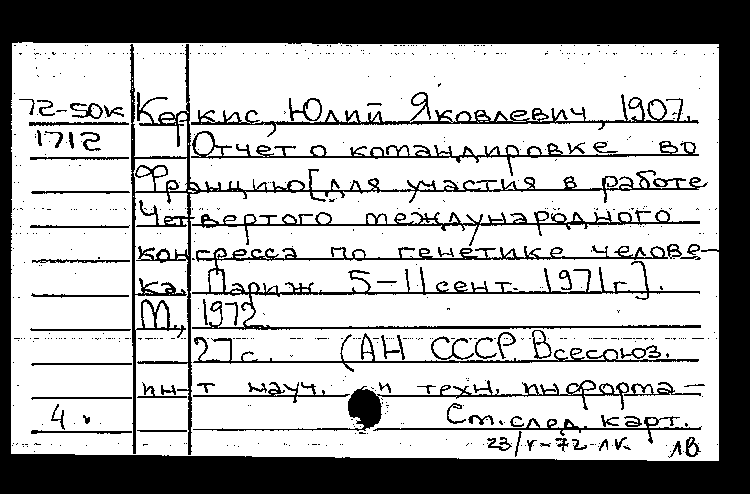 72-50к Керкис, Юлий Яковлевич, 1907.
1712 Отчет о командировке во
Францию [для участия в работе
Четвертого международного
конгресса по генетике челове-
ка. Париж. 5-11 сент. 1971 г.].
М., 1972.
27 с. (АН СССР. Всесоюз.
ин-т науч. и техн. информа-
4. См. след. карт.
23/V-72 лк лв